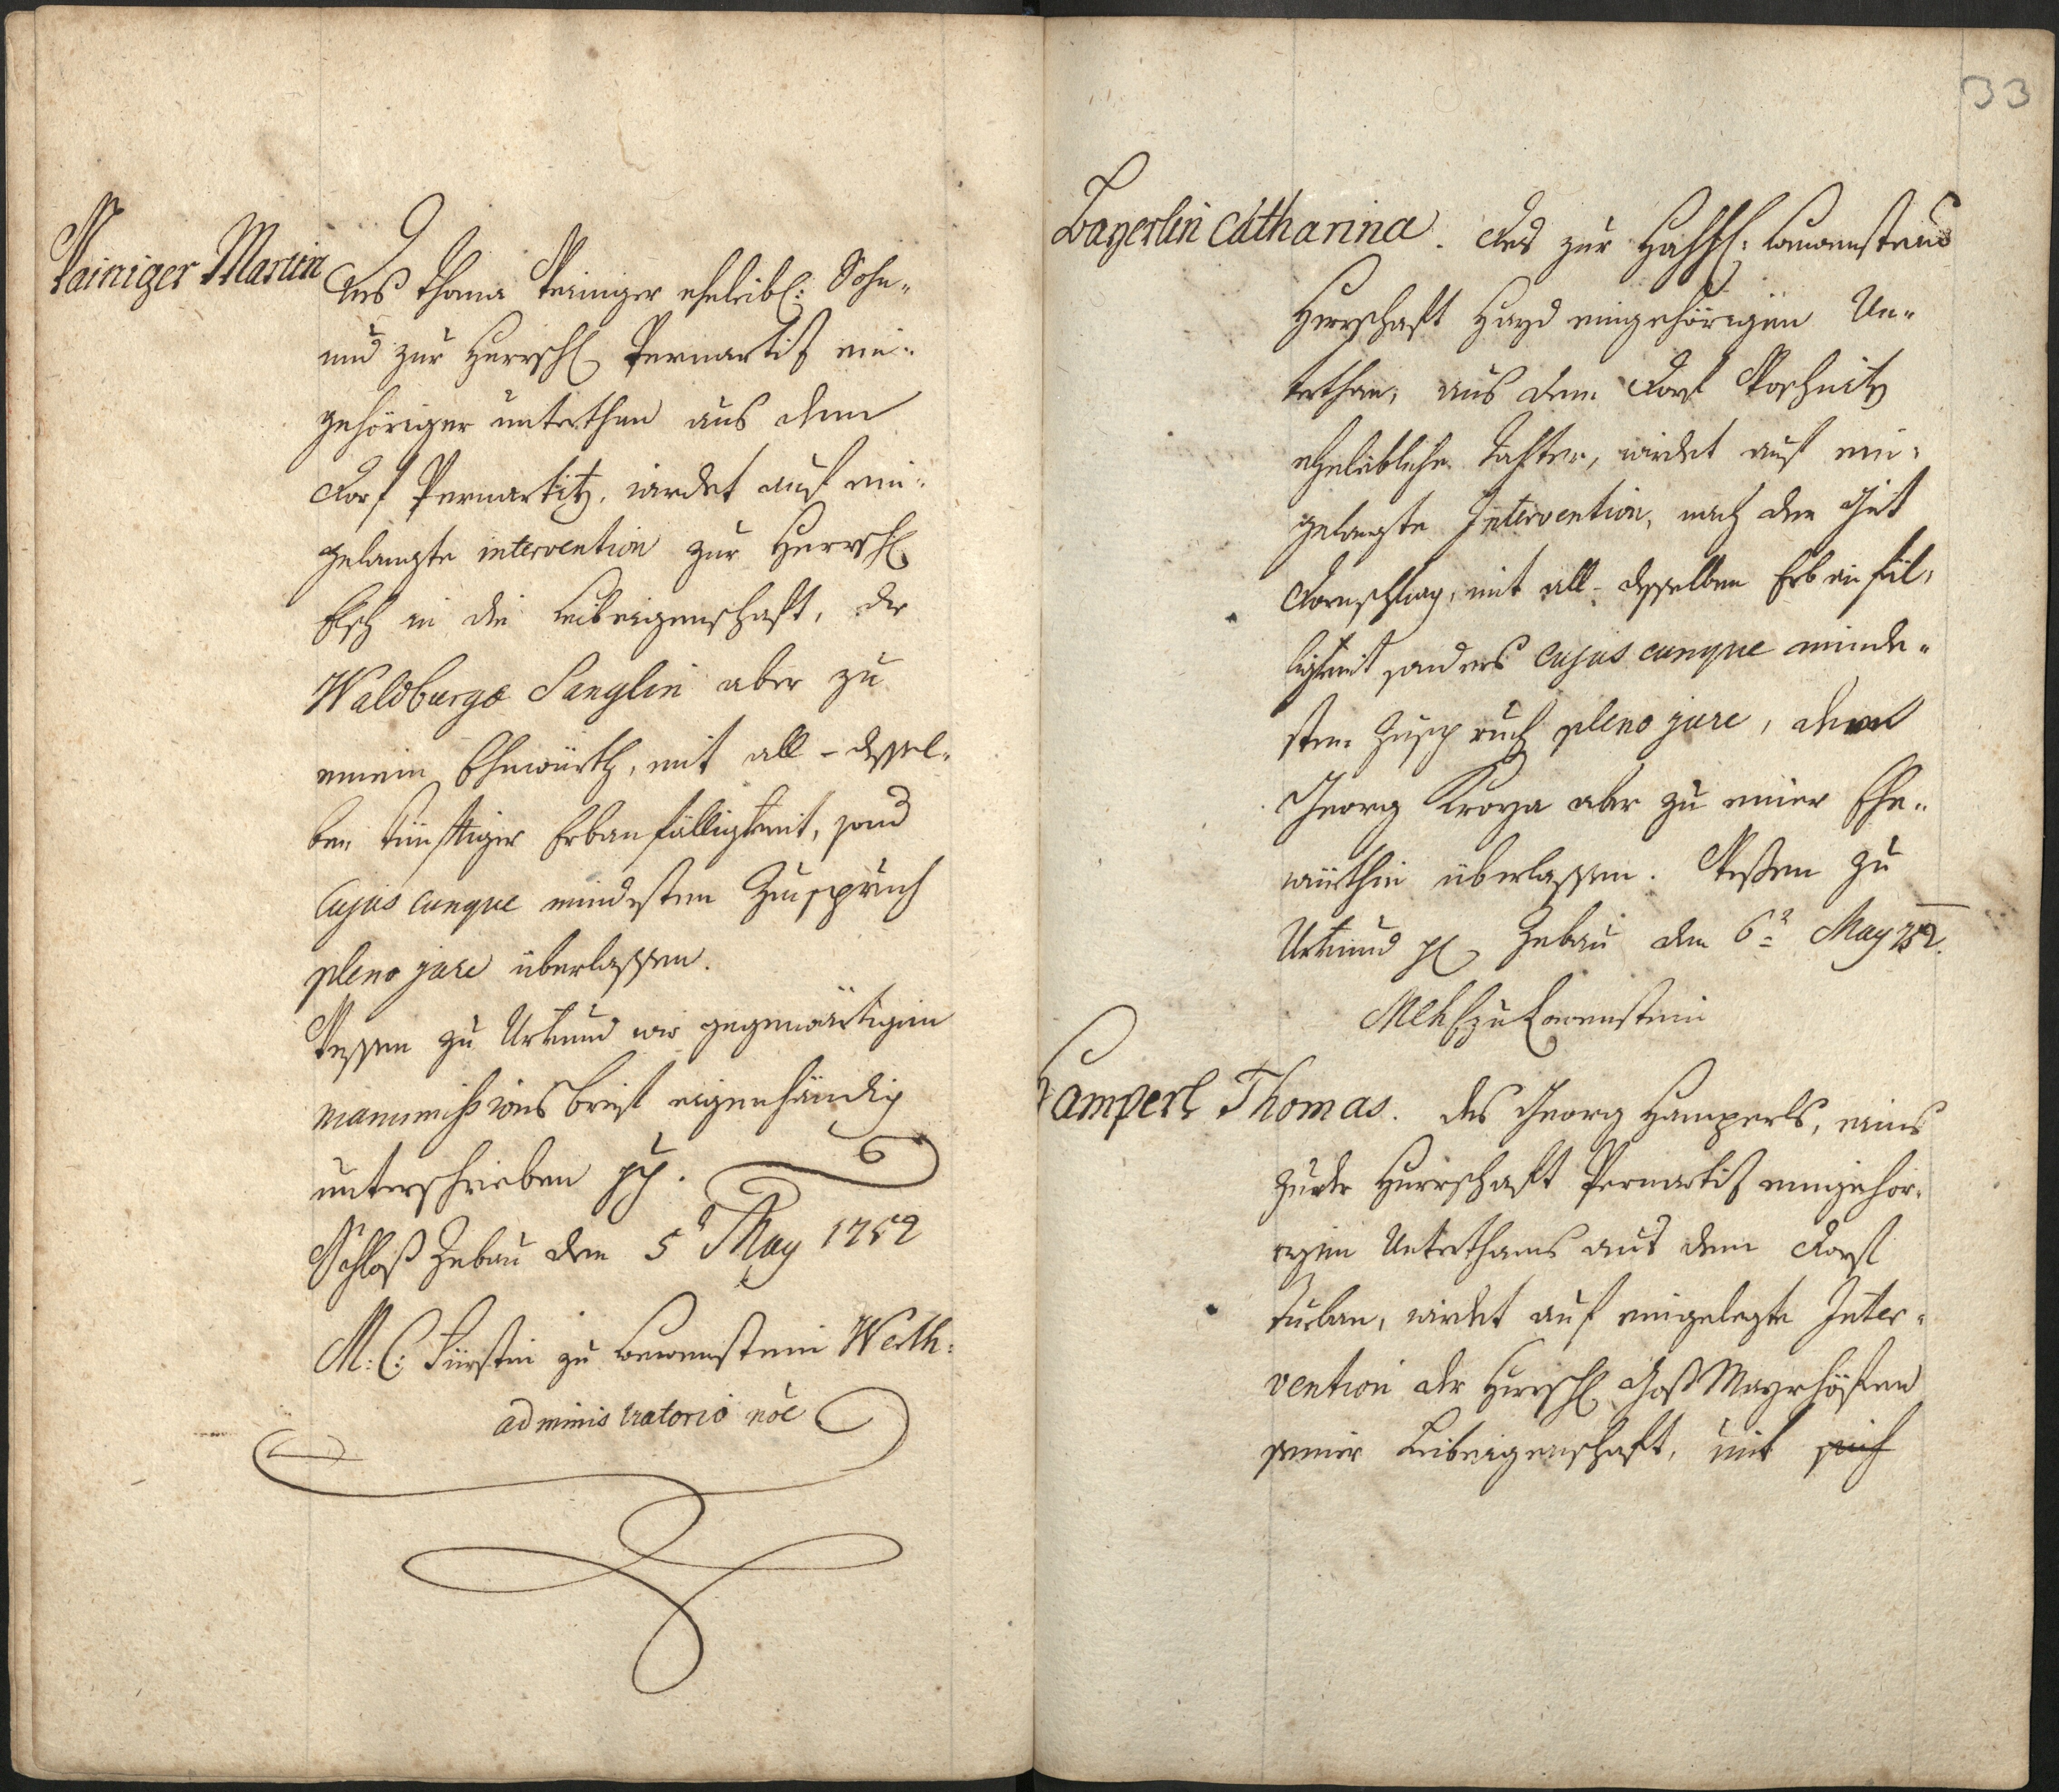 Painiger Martin
Des Thoma Peiniger eheleibl: Sohn-
und zur Herrsch Pernartiz ein-
gehöriger unterthan aus dem
Dorf Pernartitz, wirdet auf ein-
gelangte intervention zur Herrsch
in die Leibeigenschaft, der
Waldburga Sanglin aber zu
einein Ehewürth, mit all-dessel-
ben künftiger Erbanfälligkeit, sond
Cujus cunque mindesten Zuspruch
pleno jure überlassen.
Dessen zu Urkund wir gegenwärtigen
manumissions brief eigenhändig
unterschrieben
Schloß Zebau den 5t May 1752
M: C: Fürstin zu Lewenstein Werth:
administratorio nõe
33
Bayerlin Catharina. Des zur Lewenstein
Herrschaft Hayd eingehörigen Un-
terthan, aus dem Dorf
eheleibliche Tochter, wirdet auf ein-
gelangte Intervention, nach dem Gut
Dornschlag, mit all-desselben Erb einfäl-
ligkeit sonders cujus cunque minde-
sten Zuspruch pleno jure, dem
Georg aber zu einer Ehe-
würthin überlassen. Dessen zu
Urkund Zebau den 6t May 752.
zu Lewenstein
Hamperl Thomas. des Georg Hamperls, eines
zu der Herrschaft Pernartiz eingehör-
igen Unterthans aus dem Dorf
wirdet auf eingelegte Inter-
vention der Herrsch Mayrhöfen
seiner Leibeigenschaft, mit